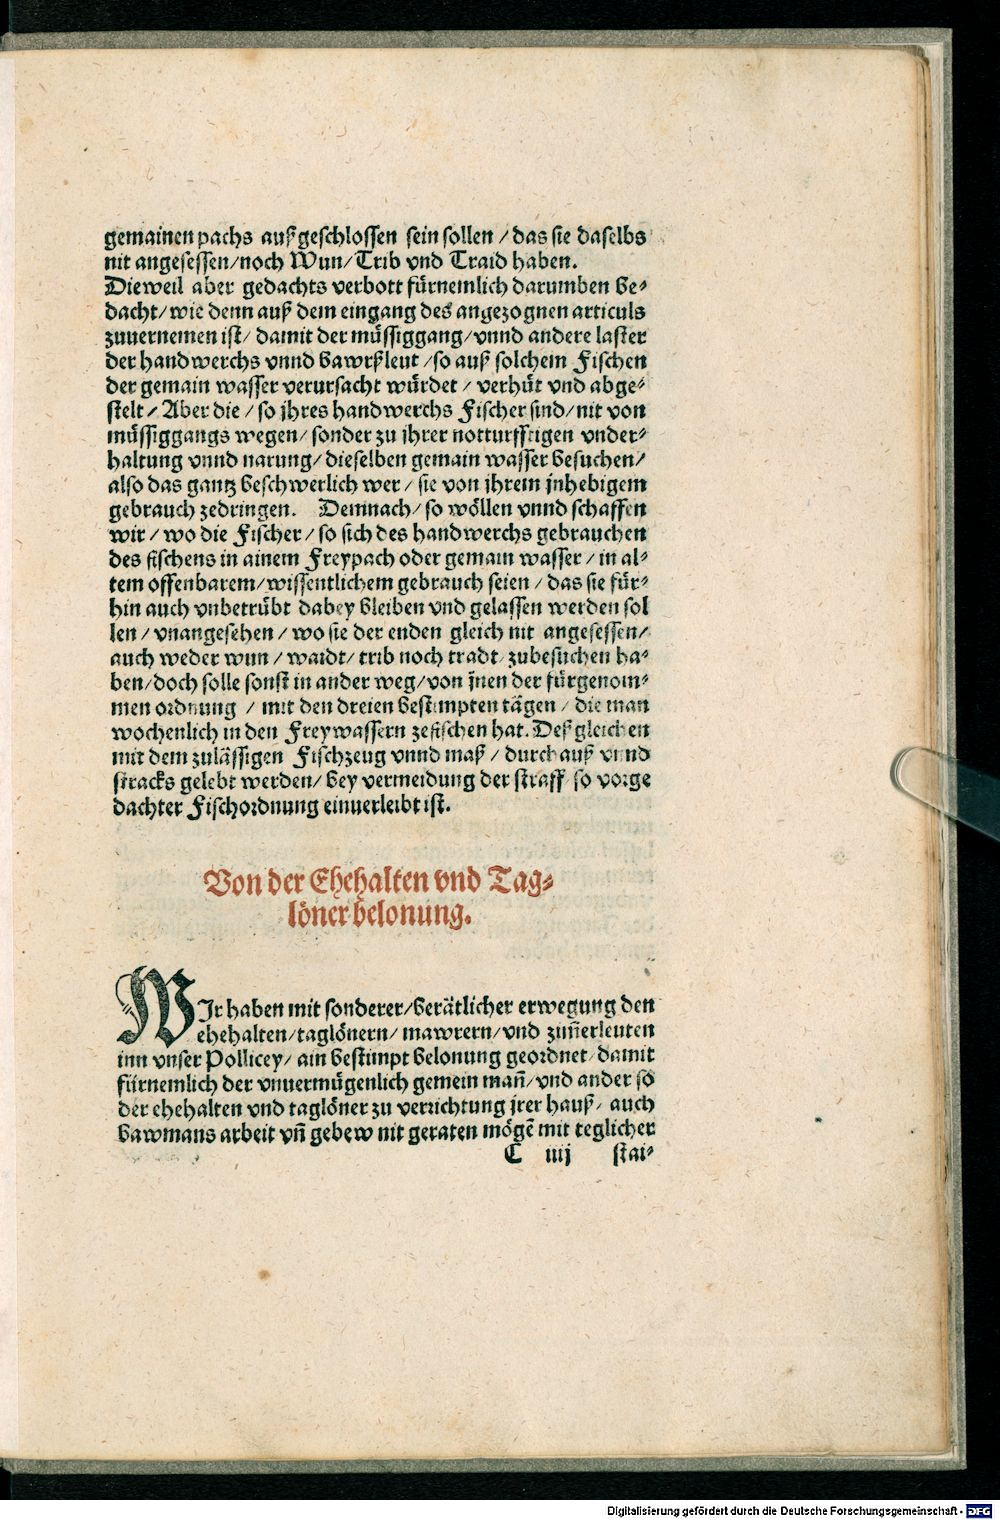 gemainen pachs außgeschlossen sein sollen / das sie daselbs
nit angesessen/noch Wun/Trib vnd Traid haben.
Dieweil aber gedachts verbott fürnemlich darumben be-
dacht/wie denn auß dem eingang des angezognen articuls
zuuernemen ist/ damit der müssiggang/vnnd andere laster
der handwerchs vnnd bawrßleut /so auß solchem Fischen
der gemain wasser verursacht würdet / verhüt vnd abge-
stelt/ Aber die / so jhres handwerchs Fischer sind/nit von
müssiggangs wegen/ sonder zu jhrer notturfftigen vnder-
haltung vnnd narung/ dieselben gemain wasser besuchen/
also das gantz beschwerlich wer / sie von jhrem jnhebigem
gebrauch zedringen. Demnach/ so wöllen vnnd schaffen
wir / wo die Fischer / so sich des handwerchs gebrauchen
des fischens in ainem Freypach oder gemain wasser / in al-
tem offenbarem/wissentlichem gebrauch seien / das sie für-
hin auch vnbetrübt dabey bleiben vnd gelassen werden sol
len / vnangesehen / wo sie der enden gleich nit angesessen/
auch weder wun / waidt/ trib noch tradt/ zubesuchen ha-
ben/doch solle sonst in ander weg/von jnen der fürgenom-
men ordnung / mit den dreien bestimpten tägen / die man
wochenlich in den Freywassern zefischen hat. Deßgleichen
mit dem zulässigen Fischzeug vnnd maß / durchauß vnnd
stracks gelebt werden/ bey vermeidung der straff so vorge
dachter Fischordnung einuerleibt ist.
Von der Ehehalten vnd Tag-
löner belonung.
WJr haben mit sonderer/berätlicher erwegung den
ehehalten/taglönern/ mawrern/vnd zim̃erleuten
inn vnser Pollicey/ ain bestimpt belonung geordnet/damit
fürnemlich der vnuermügenlich gemein mañ/vnd ander so
der ehehalten vnd taglöner zu verrichtung jrer hauß/ auch
bawmans arbeit vñ gebew nit geraten mögẽ mit teglicher
C iiij stai-
Digitalisierung gefördert durch die Deutsche Forschungsgemeinschaft - DFG